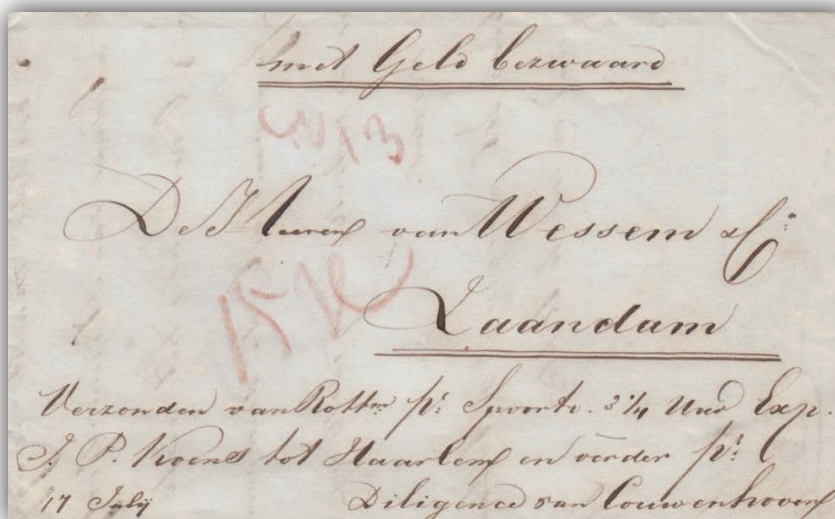 met Geld bezwaard
No 13
De Heeren van Wessem & Co:
15 
Zaandam
Verzonden van Rottm pr: Spoortr. 3 1/4 Uur Exp.
J. P. Koens tot Haarlem en verder pr:
17 Julij Diligence van Couwenhoven